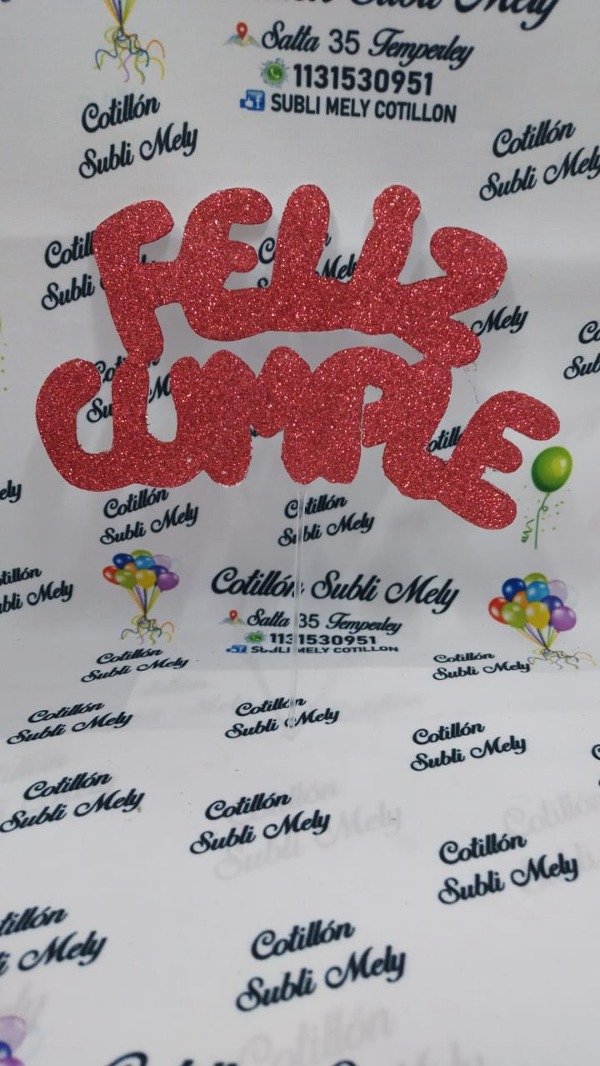 Subli Mely
Salta 35 Temperley
1131530951
SUBLI MELY COTILLON
Cotillón
Subli Mely
Cotillón
Subli Mely
FELIZ
CUMPLE
Subli
Mely
Mely
Cotillón
Subli Mely
Cotillón
Subli Mely
Cotillón Subli Mely
Salta 35 Temperley
1131530951
SUBLI MELY COTILLON
Cotillón
Subli Mely
Cotillón
Subli Mely
Cotillón
Subli Mely
Cotillón
Subli Mely
Cotillón
Subli Mely
Cotillón
Subli Mely
Cotillón
Subli Mely
Cotillón
Subli Mely
Mely
Cotillón
Subli Mely